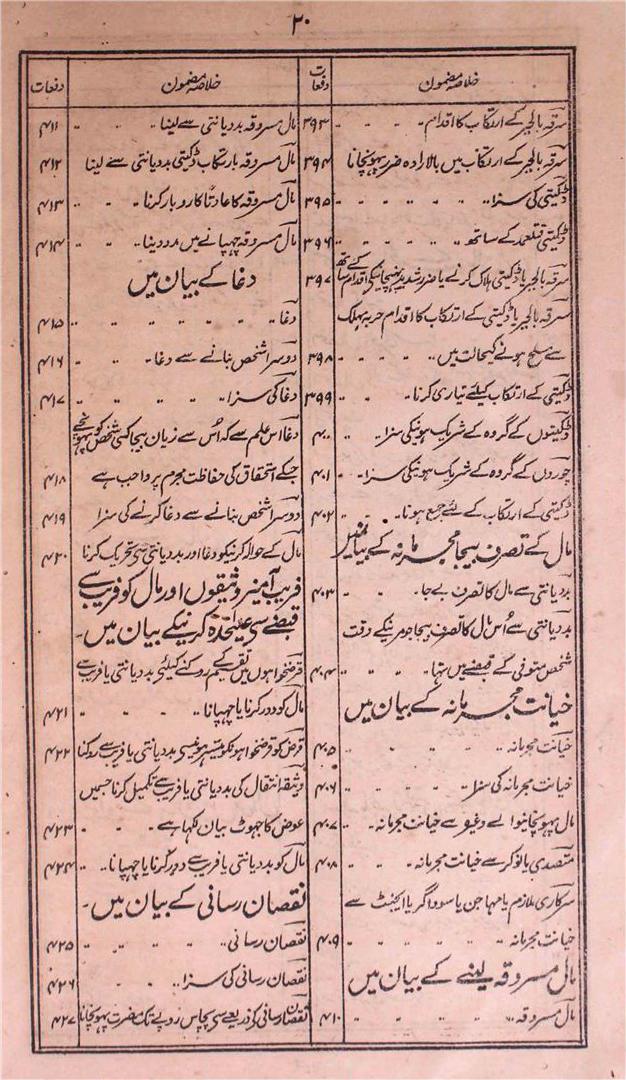 ۲۰
خلاصہ مضمون
دفعات
سرقہ بالجبر کے ارتکاب کا اقدام ۳۹۳
سرقہ بالجبر کے ارتکاب میں بالارادہ ضرر پہونچانا ۳۹۴
ڈکیتی کی سزا ۳۹۵
ڈکیتی قتلعمد کے ساتھ ۳۹۶
سرقہ بالجبر یا ڈکیتی ہلاک کرنے یا ضرر شدید پہنچانیکے اقدام کے ساتھ ۳۹۷
سرقہ بالجبر یا ڈکیتی کے ارتکاب کا اقدام حربہ مہلک
سے مسلح ہونے کیحالت میں ۳۹۸
ڈکیتی کے ارتکاب کیلئے تیاری کرنا ۳۹۹
ڈکیتوں کے گروہ کے شریک ہونیکی سزا ۴۰۰
چوروں کے گروہ کے شریک ہونیکی سزا ۴۰۱
ڈکیتی کے ارتکاب کے لئے جمع ہونا ۴۰۲
مال کے تصرف بیجا مجرمانہ کے بیانمیں
بددیانتی سے مال کا تصرف بے جا ۴۰۳
بددیانتی سے اُس مال کا تصرف بیجا جو مرنیکے وقت
شخص متوفی کے قبضے میں تہا ۴۰۴
خیانت مجرمانہ کے بیان میں
خیانت مجرمانہ ۴۰۵
خیانت مجرمانہ کی سزا ۴۰۶
مال پہونچانیوالے وغیرہ سے خیانت مجرمانہ ۴۰۷
متصدی یا نوکر سے خیانت مجرمانہ ۴۰۸
سرکاری ملازم یا مہاجن یا سوداگر یا ایجنٹ سے
خیانت مجرمانہ ۴۰۹
مال مسروقہ لینے کے بیان میں
مال مسروقہ ۴۱۰
خلاصہ مضمون
دفعات
مال مسروقہ بددیانتی سے لینا ۴۱۱
مال مسروقہ بارتکاب ڈکیتی بددیانتی سے لینا ۴۱۲
مال مسروقہ کا عادتاً کاروبار کرنا ۴۱۳
مال مسروقہ چہپانے میں مدد دینا ۴۱۴
دغا کے بیان میں
دغا ۴۱۵
دوسرا شخص بنانے سے دغا ۴۱۶
دغا کی سزا ۴۱۷
دغا اس علم سے کہ اُس سے زیان بیجا کسی شخص کو پہونچے
جسکے استحقاق کی حفاظت مجرم پر واجب ہے ۴۱۸
دوسرا شخص بنانے سے دغا کرنے کی سزا ۴۱۹
مال کے حوالہ کرنیکو دغا اور بددیانتی سے تحریک کرنا ۴۲۰
فریب آمیز وثیقوں اور مال کو فریب سے
قبضے سے علیحدہ کرنیکے بیان میں۔
قرضخواہوں میں تقسیم روکنے کیلئے بددیانتی یا فریب سے
مال کو دور کرنا یا چہپانا ۴۲۱
قرض کو قرضخواہونکو میسر ہونیسے بددیانتی یا فریب سے روکنا ۴۲۲
وثیقہ انتقال کی بددیانتی یا فریب سے تکمیل کرنا جسمیں
عوض کا جہوٹ بیان لکہا ہے ۴۲۳
مال کو بددیانتی یا فریب سے دور کرنا یا چہپانا ۴۲۴
نقصان رسانی کے بیان میں۔
نقصان رسانی ۴۲۵
نقصان رسانی کی سزا ۴۲۶
نقصان رسانی کے ذریعے سے پچاس روپے تک مضرت پہونچانا ۴۲۷